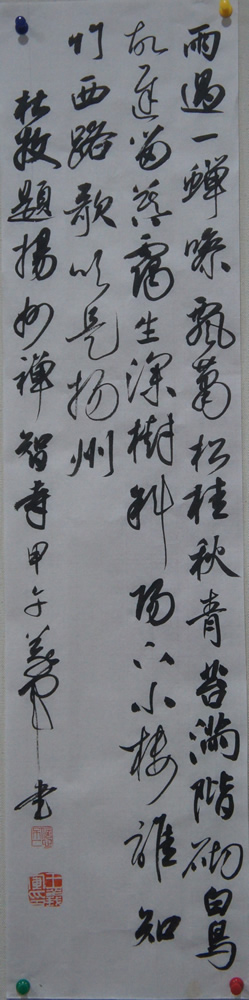 雨過一蟬噪飄蕭松桂秋青苔滿階砌白鳥
故遲留暮靄生深樹斜陽下小樓誰知
竹西路歌吹是揚州
杜牧題揚州禪智寺甲午義軍書